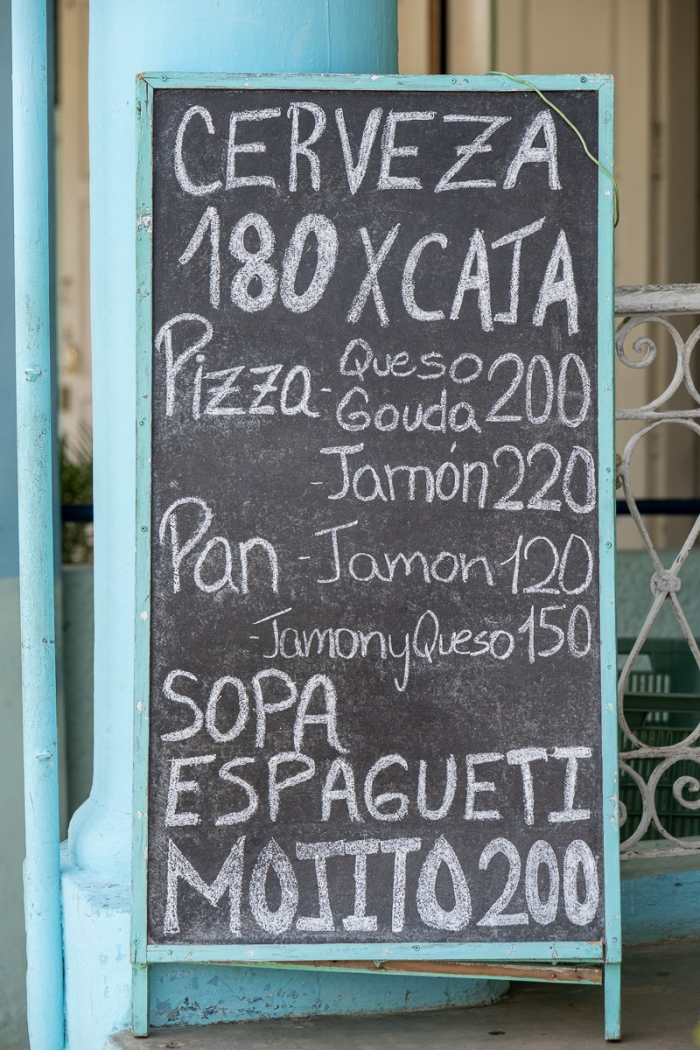 CERVEZA
180 X CAJA
Pizza - Queso Gouda 200
- Jamón 220
Pan - Jamon 120
- Jamon y Queso 150
SOPA
ESPAGUETI
MOJITO 200